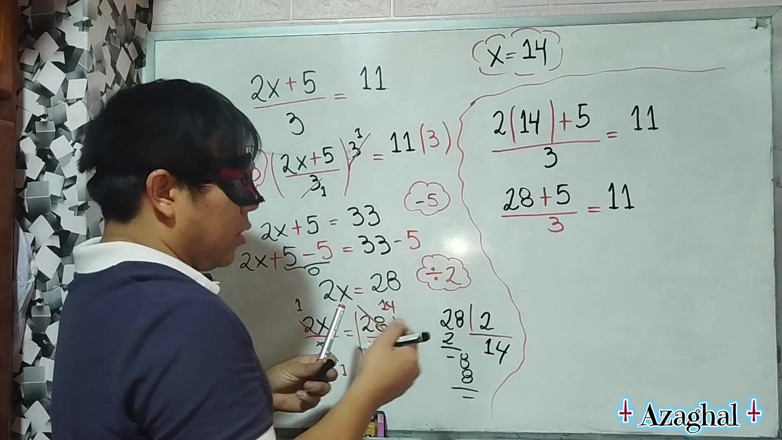 x = 14
2x + 5
3
= 11
(2x+5
3 1) 3 1 = 11 (3)
2x + 5 = 33
-5
2x + 5 - 5 = 33 - 5
0
2x = 28
÷ 2
1 14
2x = 28
1
28 | 2
2 14
- 8
8
2 (14) + 5
3
= 11
28 + 5
3
= 11
Azaghal